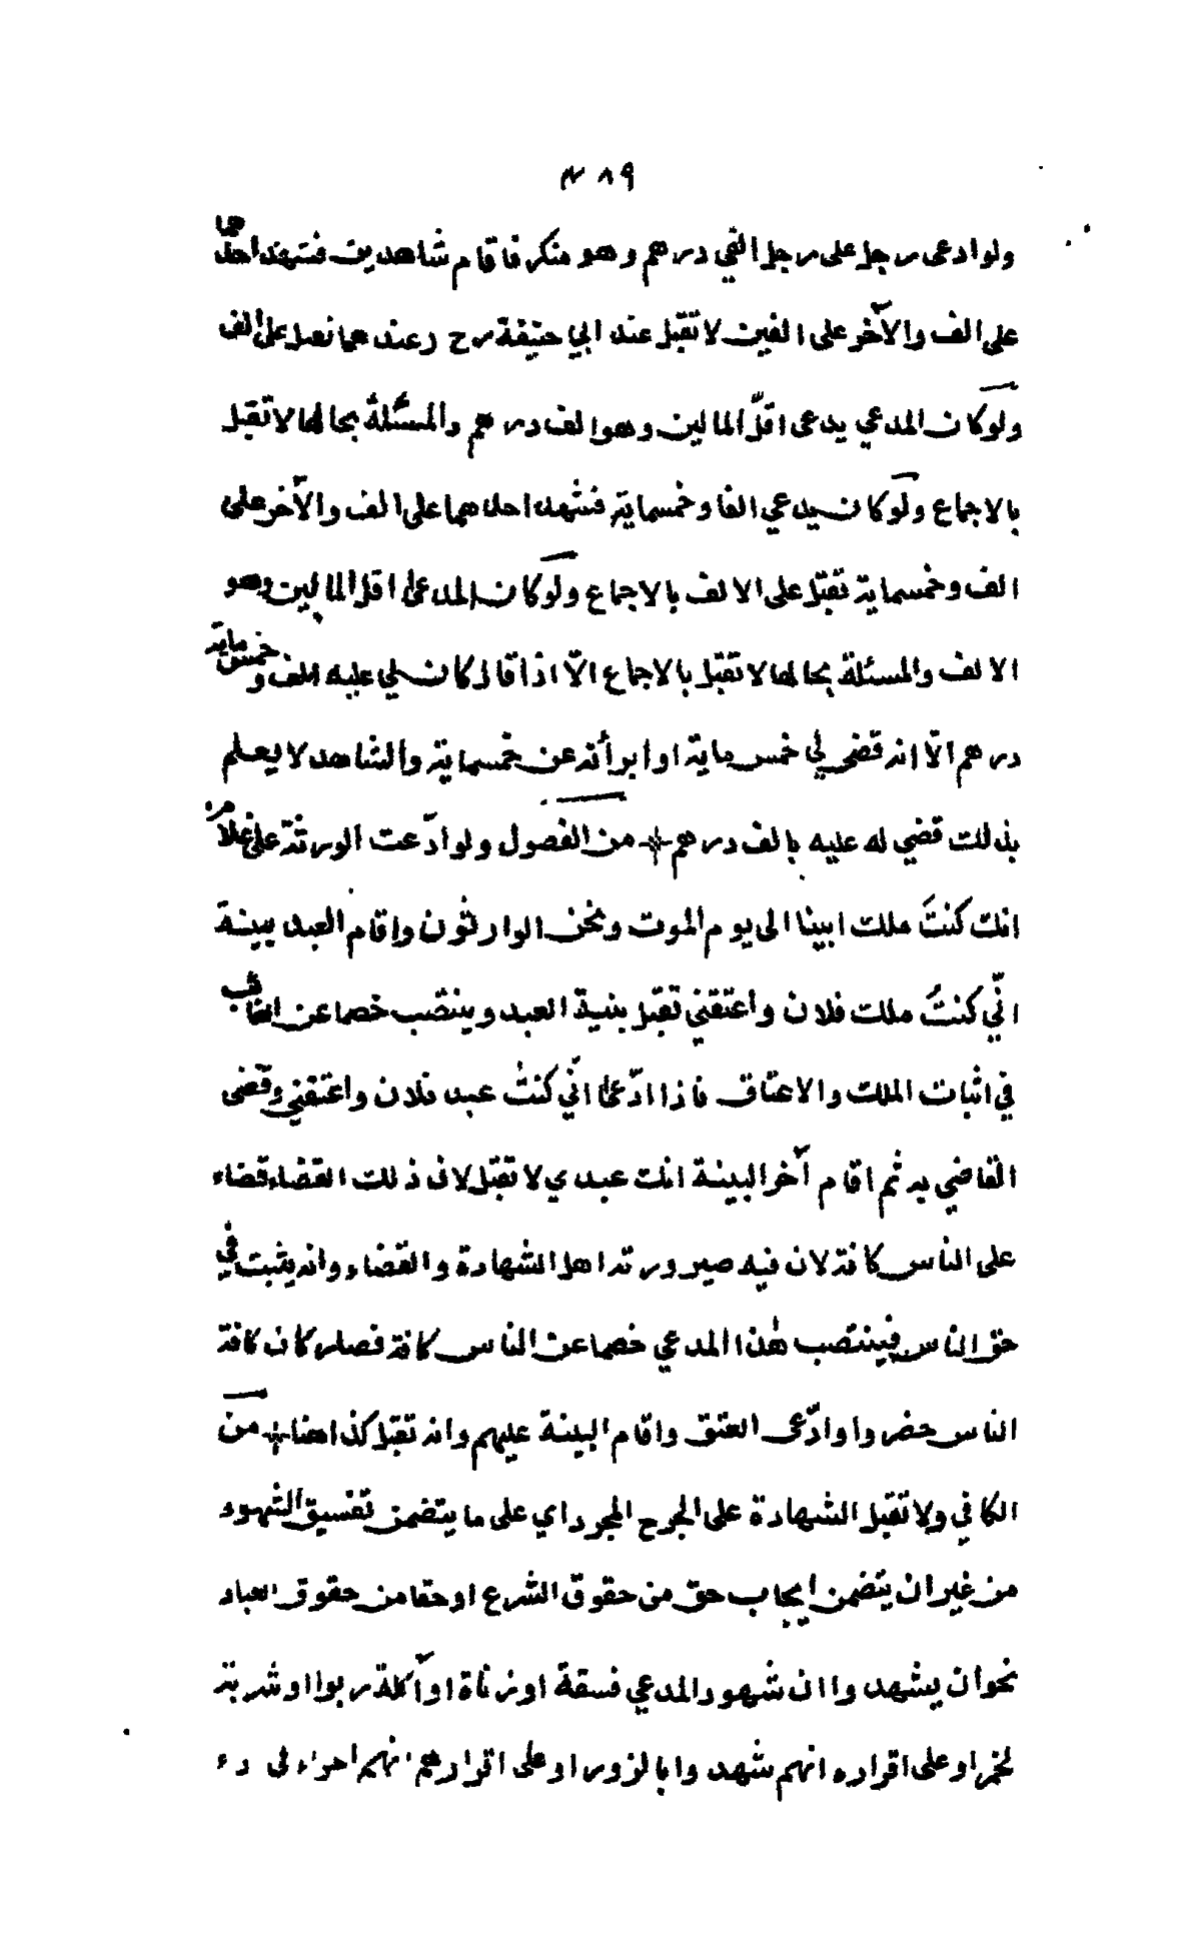 ٣٨٩
ولو ادعى رجل على رجل الفي درهم وهو منكر فاقام شاهدين فشهد احدهما
على الف والآخر على الفين لا تقبل عند ابي حنيفة رح وعندهما تقبل على الف
ولو كان المدعي يدعى اقلّ المالين وهو الف درهم والمسئلة بحالها لا تقبل
بالاجماع ولو كان يدعي الفا وخمسماية فشهد احدهما على الف والآخر على
الف وخمسماية تقبل على الالف بالاجماع ولو كان المدعى اقل المالين وهو
الالف والمسئلة بحالها لا تقبل بالاجماع الّا اذا قال كان لي عليه الف وخمس ماية
درهم الّا انه قضى لي خمس ماية او ابرأته عن خمسماية والشاهد لا يعلم
بذلك قضي له عليه بالف درهم * من الفصول ولو ادّعت الورثة على غلام
انك كنتَ ملك ابينا الى يوم الموت ونحن الوارثون واقام العبد بينة
انّي كنتُ ملك فلان واعتقني تقبل بنية العبد وينتصب خصما عن الغائب
في اثبات الملك والاعتاق فاذا ادّعى انّي كنتُ عبد فلان واعتقني وقضى
القاضي به ثم اقام آخر البينة انك عبدي لا تقبل لان ذلك القضاء قضاء
على الناس كافة لان فيه صيرورته اهل الشهادة والقضاء وانه يثبت في
حق الناس فينتصب هذا المدعي خصما عن الناس كافة فصار كان كافة
الناس حضروا وادّعى العتق واقام البينة عليهم وانه تقبل كذا هنا * من
الكافي ولا تقبل الشهادة على الجرح المجرد اي على ما يتضمن تفسيق الشهود
من غير ان يتضمن ايجاب حق من حقوق الشرع او حقا من حقوق العباد
نحو ان يشهدوا ان شهود المدعي فسقة او زناة او آكلة ربوا او شربة
لخمر او على اقراره انهم شهدوا بالزور او على اقرارهم انهم اجراء في